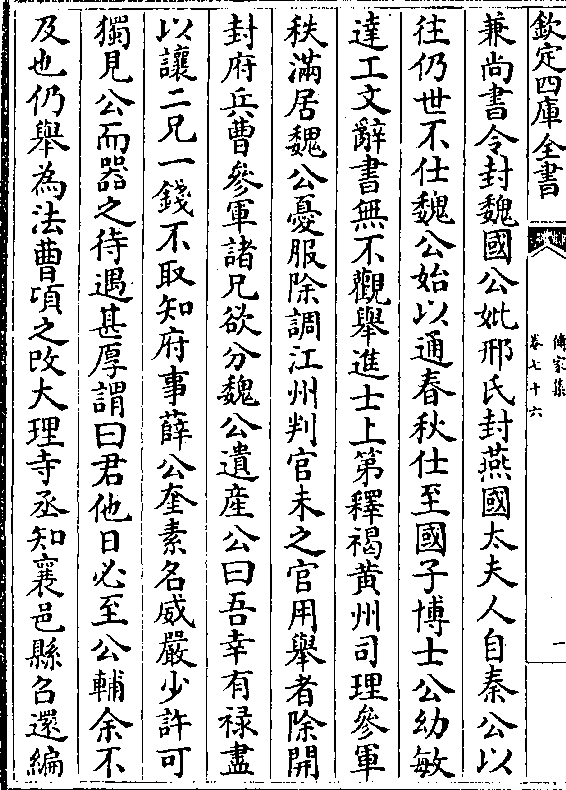 欽定四庫全書
傳家集
卷七十六
一
兼尚書令封魏國公妣邢氏封燕國太夫人自秦公以
往仍世不仕魏公始以通春秋仕至國子博士公幼敏
達工文辭書無不觀舉進士上第釋褐黄州司理參軍
秩滿居魏公憂服除調江州判官未之官用舉者除開
封府兵曹參軍諸兄欲分魏公遺産公曰吾幸有禄盡
以讓二兄一錢不取知府事薛公奎素名威嚴少許可
獨見公而器之待遇甚厚謂曰君他日必至公輔余不
及也仍舉為法曹頃之改大理寺丞知襄邑縣召還編